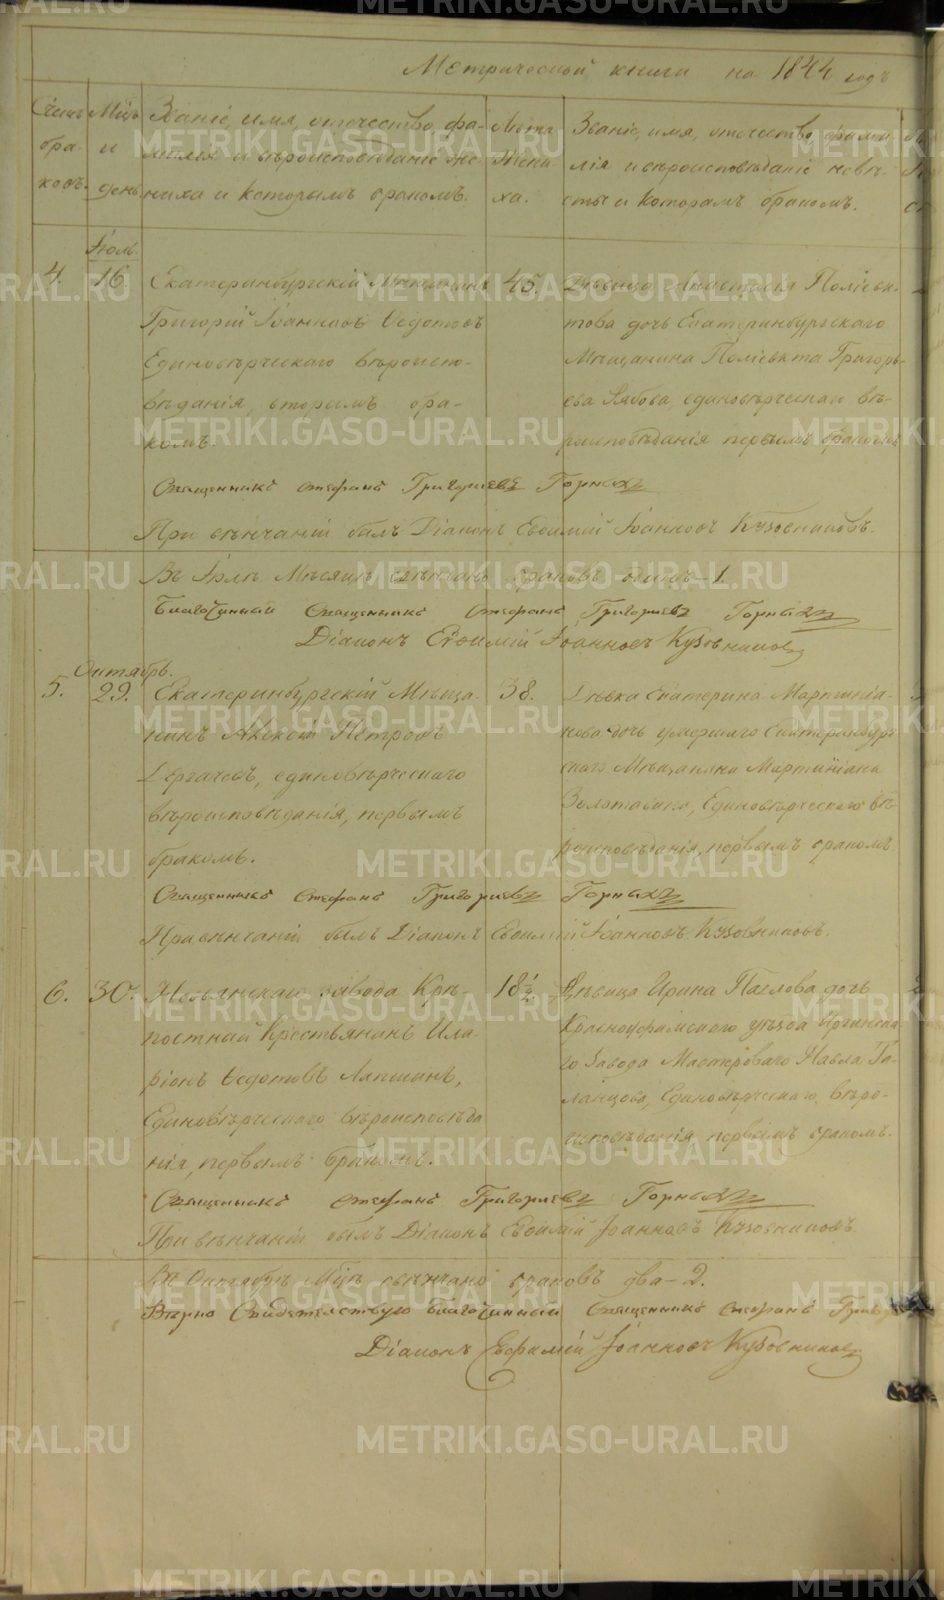 Метрической книги на 1844 годъ
Счетъ бра- ковъ.
Мѣц. и день
Званіе, имя, отечество, фа-
милія и вѣроисповѣданіе же-
ниха и которымъ бракомъ.
Лѣта жени- ха.
Званіе, имя, отечество, фами-
лія и вѣроисповѣданіе невѣ-
сты и которымъ бракомъ.
Іюль.
4. 16.
Екатеринбургскій Мѣщанинъ
Григорій Іоанновъ Ѳедотовъ
Единовѣрческаго вѣроиспо-
вѣданія, вторымъ бра-
комъ.
45.
Дѣвица Анастасія Поліевк-
това дочь Екатеринбургскаго
Мѣщанина Поліевкта Григорь-
ева Рябова, единовѣрческаго вѣ-
роисповѣданія первымъ бракомъ
Священникъ Стефанъ Григорьевъ Горныхъ
При вѣнчаніи былъ Діаконъ Евфимій Іоанновъ Кузовниковъ.
Въ Іюлѣ Мѣсяцѣ вѣнчано браковъ одинъ-1.
Благочинный Священникъ Стефанъ Григорьевъ Горныхъ
Діаконъ Евфимій Іоанновъ Кузовниковъ
Октябрь.
5. 29.
Екатеринбургскій Мѣща-
нинъ Алексій Петровъ
Дергачевъ, единовѣрческаго
вѣроисповѣданія, первымъ
бракомъ.
38.
Дѣвка Екатерина Мартиніа-
нова дочь умершаго Екатеринбур-
скаго Мѣщанина Мартиніана
Золотавина, Единовѣрческаго вѣ-
роисповѣданія, первымъ бракомъ.
Священникъ Стефанъ Григорьевъ Горныхъ
При вѣнчаніи былъ Діаконъ Евфимій Іоанновъ Кузовниковъ.
6. 30.
Невьянскаго завода Крѣ-
постный Крестьянинъ Ила-
ріонъ Ѳедотовъ Лапшинъ,
Единовѣрческаго вѣроисповѣда
нія, первымъ бракомъ.
18½
Дѣвица Ирина Павлова дочь
Красноуфимскаго уѣзда Иргинска-
го завода Мастероваго Павла Га-
ланцова, Единовѣрческаго, вѣро-
исповѣданія, первымъ бракомъ.
Священникъ Стефанъ Григорьевъ Горныхъ
При вѣнчаніи былъ Діаконъ Евфимій Іоанновъ Кузовниковъ
Въ Октябрѣ Мцѣ вѣнчано браковъ два-2.
Вѣрно Свидѣтельствую Благочинный Священникъ Стефанъ
Діаконъ Евфимій Іоанновъ Кузовниковъ
METRIKI.GASO-URAL.RU